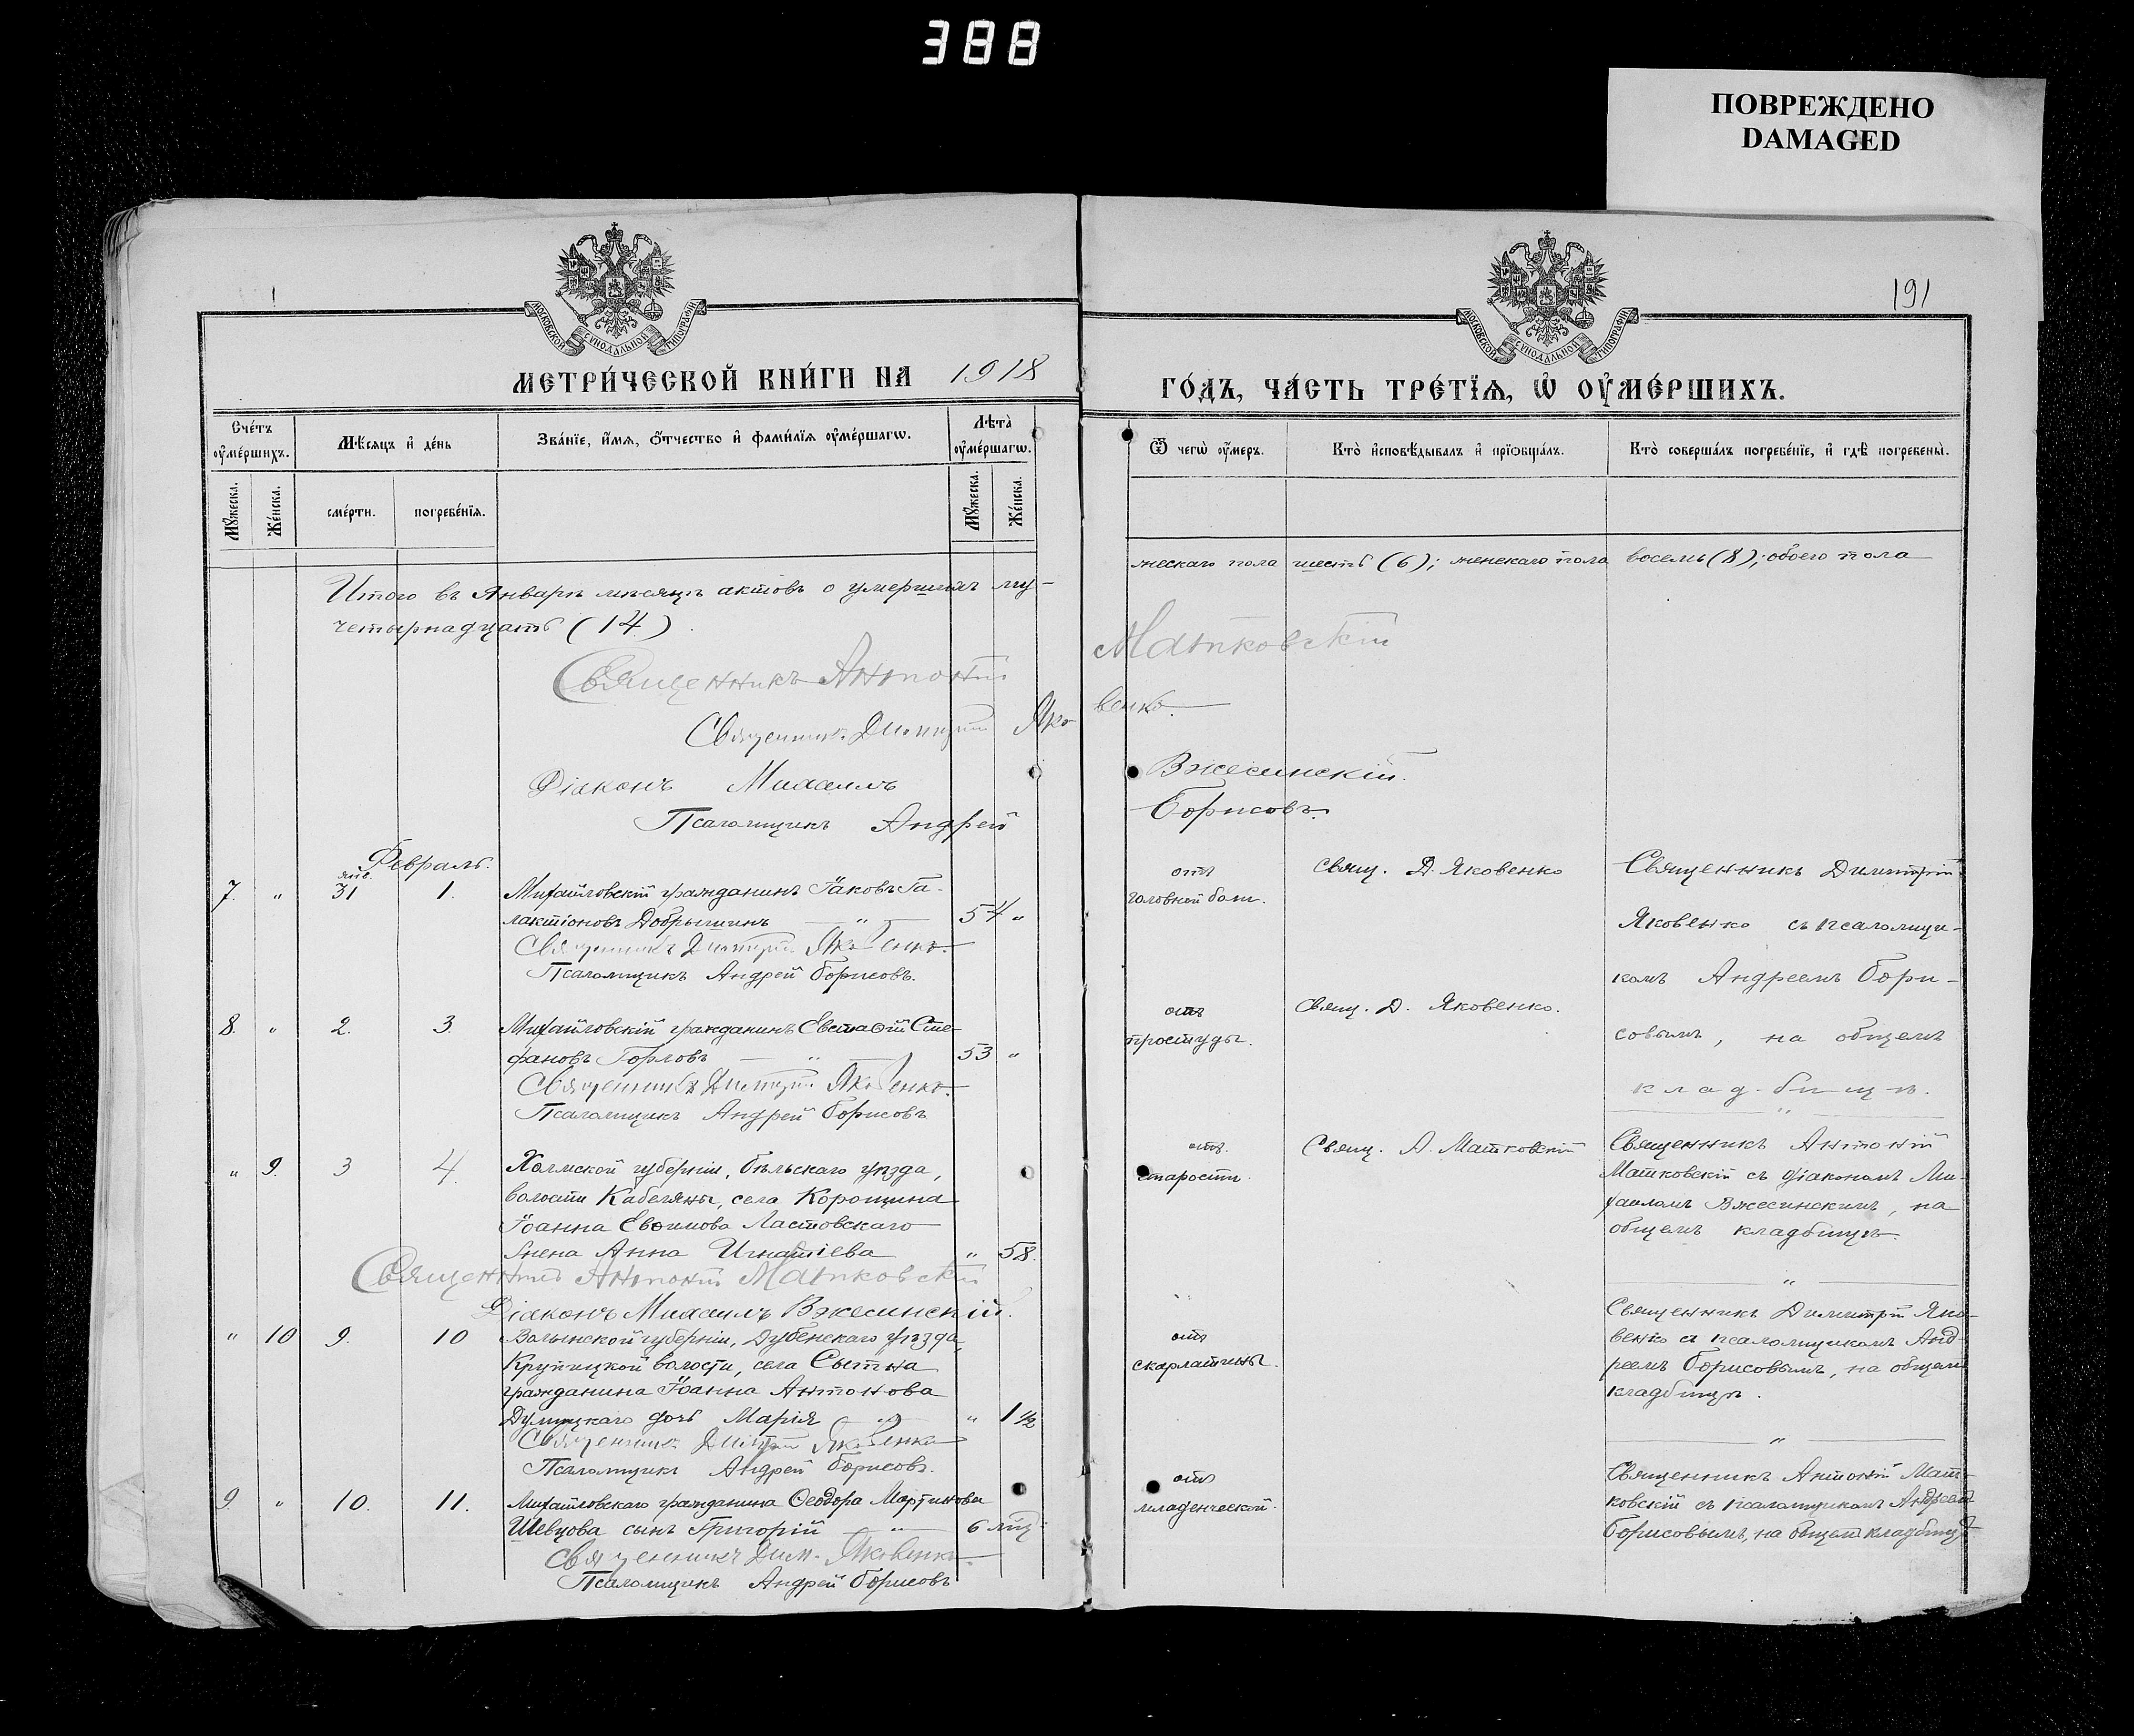 388
ПОВРЕЖДЕНО
DAMAGED
191
МОСКОВСКОЙ СѴНОДАЛЬНОЙ ТИПОГРАФІИ
МОСКОВСКОЙ СѴНОДАЛЬНОЙ ТИПОГРАФІИ
МЕТРИ́ЧЕСКОЙ КНИ́ГИ НА 1918
ГО́ДЪ, ЧА́СТЬ ТРЕ́ТЇѦ, Ѡ҆ ОУ҆МЕ́РШИХЪ.
Сче́тъ оу҆ме́ршихъ.
Мѣ́сяцъ и҆ де́нь
Зва́нїе, и҆́мѧ, о҆́тчество и҆ фами́лїѧ оу҆ме́ршагѡ.
Лѣ́та оу҆ме́ршагѡ.
Мꙋ́жеска.
Же́нска.
сме́рти.
погребе́нїѧ.
Мꙋ́жеска.
Же́нска.
Ѿ чегѡ̀ оу҆́меръ.
Кто̀ и҆сповѣ́дывалъ и҆ прїѻбща́лъ.
Кто̀ соверша́лъ погребе́нїе, и҆ гдѣ̀ погребены̀.
Итого въ Январѣ мѣсяцѣ актовъ о умершихъ му-
жескаго пола шесть (6); женскаго пола восемь (8); обоего пола
четырнадцать (14).
Священникъ Антоній Матковскій
Священникъ Димитрій Яковенко.
Діаконъ Михаилъ Вжесинскій.
Псаломщикъ Андрей Борисовъ.
Февраль.
янв.
7. " 31 1. Михайловскій гражданинъ Іаковъ Га-
лактіоновъ Добрышинъ — " — 54 "
Священникъ Димитрій Яковенко.
Псаломщикъ Андрей Борисовъ.
отъ
головной боли.
Свящ. Д. Яковенко
Священникъ Димитрій
Яковенко съ псаломщи-
комъ Андреемъ Бори-
совымъ, на общемъ
кладбищѣ.
8. " 2. 3. Михайловскій гражданинъ Евстаѳій Сте-
фановъ Горловъ — " — 53 "
Священникъ Димитрій Яковенко.
Псаломщикъ Андрей Борисовъ
отъ
простуды.
Свящ. Д. Яковенко.
" 9. 3 4. Холмской губерніи, Бѣльскаго уѣзда,
волости Кабеляны, села Корощина
Іоанна Евѳимова Ластовскаго
жена Анна Игнатіева " 58.
Священникъ Антоній Матковскій
Діаконъ Михаилъ Вжесинскій.
отъ
старости.
Свящ. А. Матковскій
Священникъ Антоній
Матковскій съ діакономъ Ми-
хаиломъ Вжесинскимъ, на
общемъ кладбищѣ.
" 10 9. 10 Волынской губерніи, Дубенскаго уѣзда,
волости, села Сытна
гражданина Іоанна Антонова
дочь Марія — " — " 1 1/2
Священникъ Димитрій Яковенко
Псаломщикъ Андрей Борисовъ.
отъ
скарлатины.
Священникъ Димитрій Яко-
венко съ псаломщикомъ Анд-
реемъ Борисовымъ, на общемъ
кладбищѣ.
9 " 10. 11. Михайловскаго гражданина Ѳеодора Мартинова
Шевцова сынъ Григорій — " — 6 мѣц.
Священникъ Дим. Яковенко.
Псаломщикъ Андрей Борисовъ
отъ
младенческой.
Священникъ Антоній Мат-
ковскій съ псаломщикомъ Андреемъ
Борисовымъ, на общемъ кладбищѣ